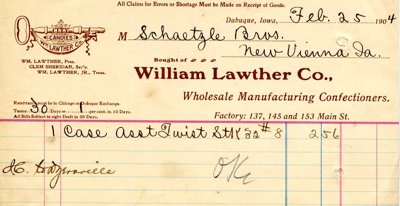 All Claims for Errors or Shortage Must be Made on Receipt of Goods.
Dubuque, Iowa, Feb. 25 1904
M Schaetzle Bros.
New Vienna Ia.
CANDIES
WM. LAWTHER CO.
WM. LAWTHER, Pres.
CLEM SHERIDAN, Sec'y.
WM. LAWTHER, JR., Treas.
Bought of
William Lawther Co.,
Wholesale Manufacturing Confectioners.
Factory: 137, 145 and 153 Main St.
Remittances must be in Chicago or Dubuque Exchange.
Terms: 30 Days or 1 per cent. 10 Days
All Bills Subject to sight Draft in 30 Days.
1 Case Asst Twist Stk 32# 8 2 56
OK